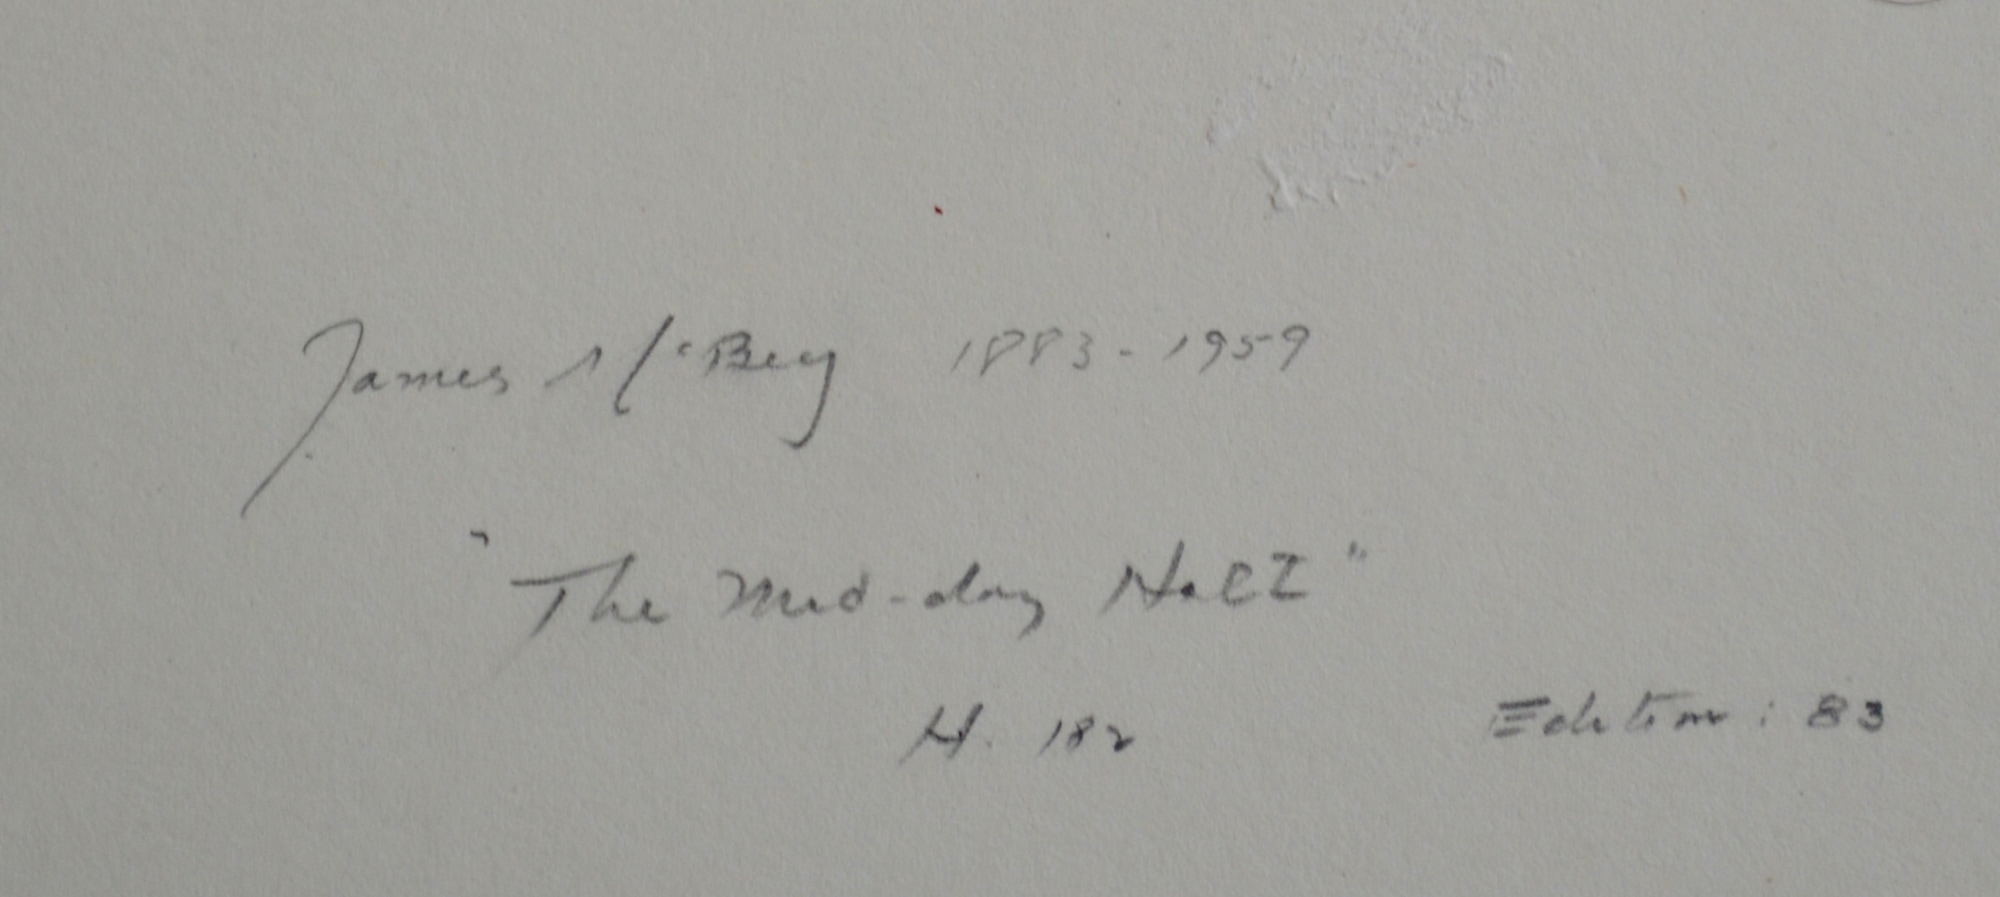 James McBey 1883-1959
"The Mid-day Halt"
H. 182
Edition: 83